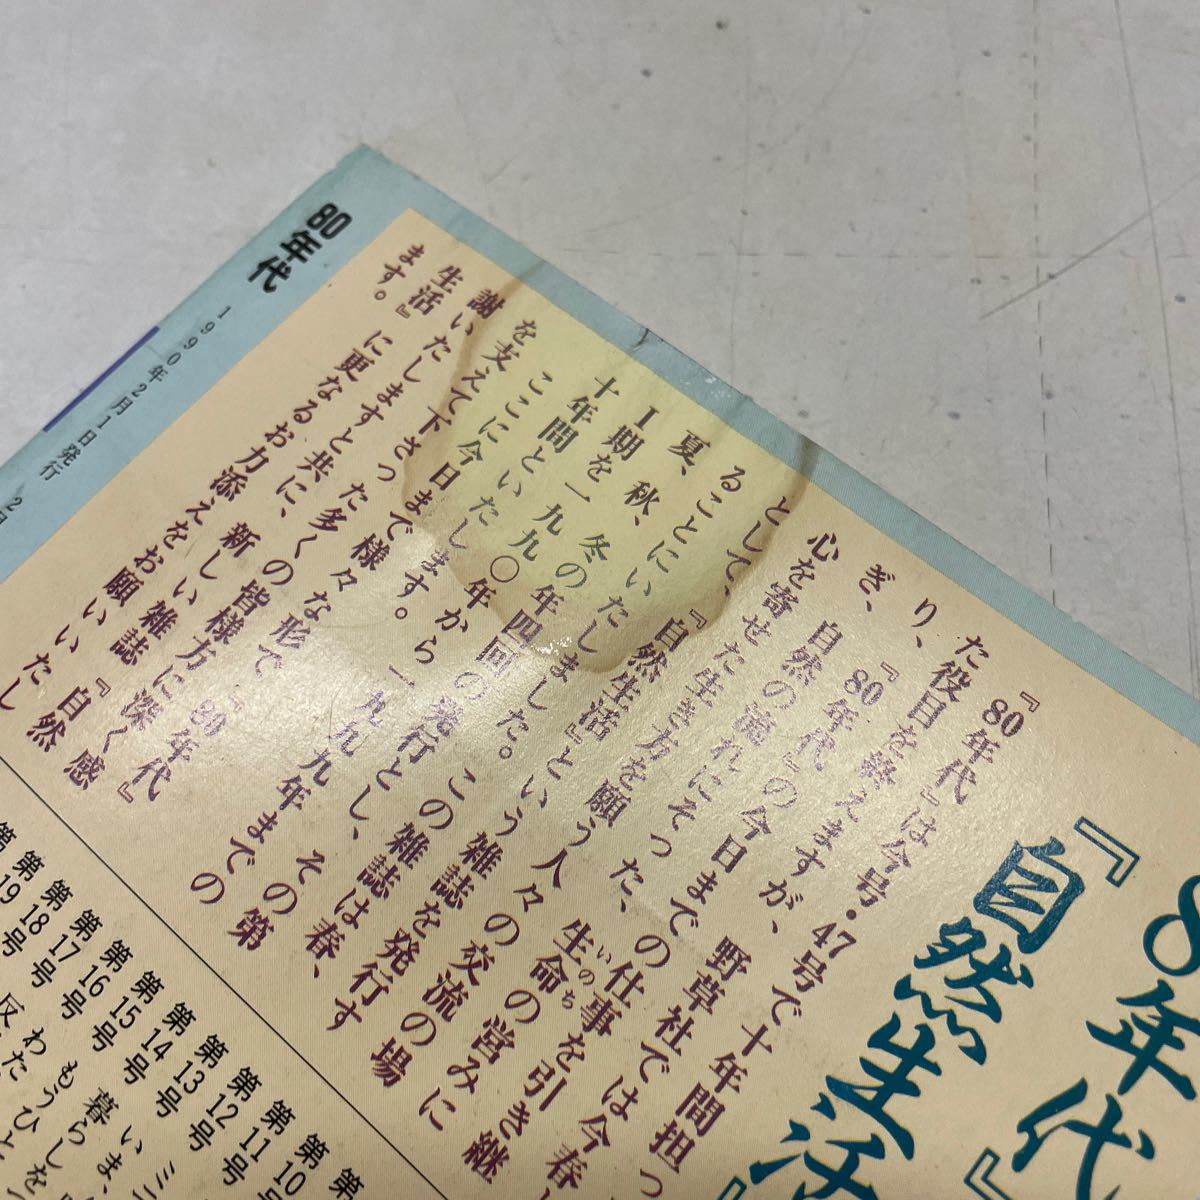 8年代』
『自然生活』
『80年代』は今号・47号で十年間担っ
た役目を終えますが、野草社では今春よ
り、『80年代』の今日までの仕事を引き継
ぎ、自然の流れにそった、生命の営みに
いのち
心を寄せた生き方を願う人々の交流の場
として、『自然生活』という雑誌を発行す
ることにいたしました。この雑誌は春、
夏、秋、冬の年四回の発行とし、その第
Ⅰ期を一九九〇年から一九九九年までの
十年間といたします。
ここに今日まで様々な形で『80年代』
を支えて下さった多くの皆様方に深く感
謝いたしますと共に、新しい雑誌『自然
生活』に更なるお力添えをお願いいたし
ます。
第10号
第11号
第12号
第13号
第14号
第15号
第16号
第17号
第18号
第19号
80年代 1990年2月1日発行